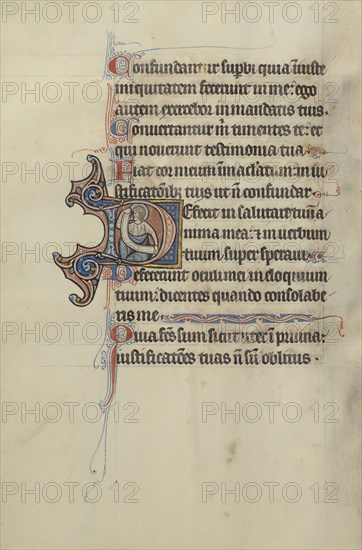 Confundant̄ suṗbi quia iniuste
iniquitatem fecerunt in me: ego
autem exercebor in mandatis tuis.
Conuertantur m̄ timentes te: et
qui nouerunt testimonia tua
Fiat cor meum inmaclatum in iu
stificatōib; tuis ut n̄ confundar.
Defecit in salutare tuū a
nima mea: & in uerbum
tuum super speraui
Defecerunt oculi mei in eloquium
tuum: dicentes quando consolabe
ris me
Quia fc̄s sum sicut uter ī pruina:
iustificatōes tuas n̄ sū oblitus.
PHOTO 12